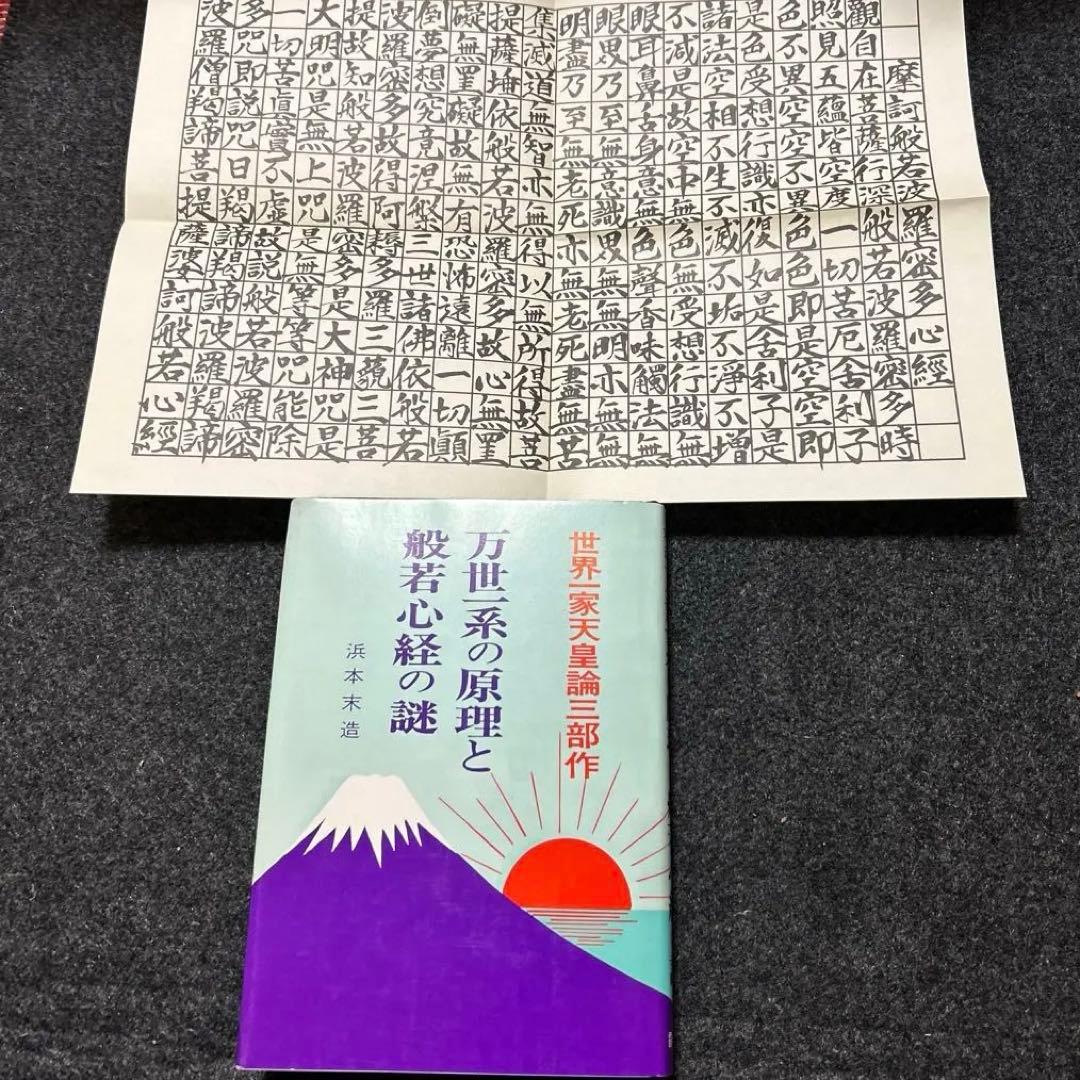 摩訶般若波羅密多心經
觀自在菩薩行深般若波羅密多時
照見五蘊皆空度一切苦厄舍利子
色不異空空不異色色即是空空即
是色受想行識亦復如是舍利子是
諸法空相不生不滅不垢不淨不增
不減是故空中無色無受想行識無
眼耳鼻舌身意無色聲香味觸法無
眼界乃至無意識界無無明亦無無
明盡乃至無老死亦無老死盡無苦
集滅道無智亦無得以無所得故菩
提薩埵依般若波羅密多故心無罣
礙無罣礙故無有恐怖遠離一切顛
倒夢想究竟涅槃三世諸佛依般若
波羅密多故得阿耨多羅三藐三菩
提故知般若波羅密多是大神咒是
大明咒是無上咒是無等等咒能除
一切苦眞實不虛故說般若波羅密
多咒即說咒曰羯諦羯諦波羅羯諦
波羅僧羯諦菩提薩婆訶般若心經
世界一家天皇論三部作
万世一系の原理と
般若心経の謎
浜本末造